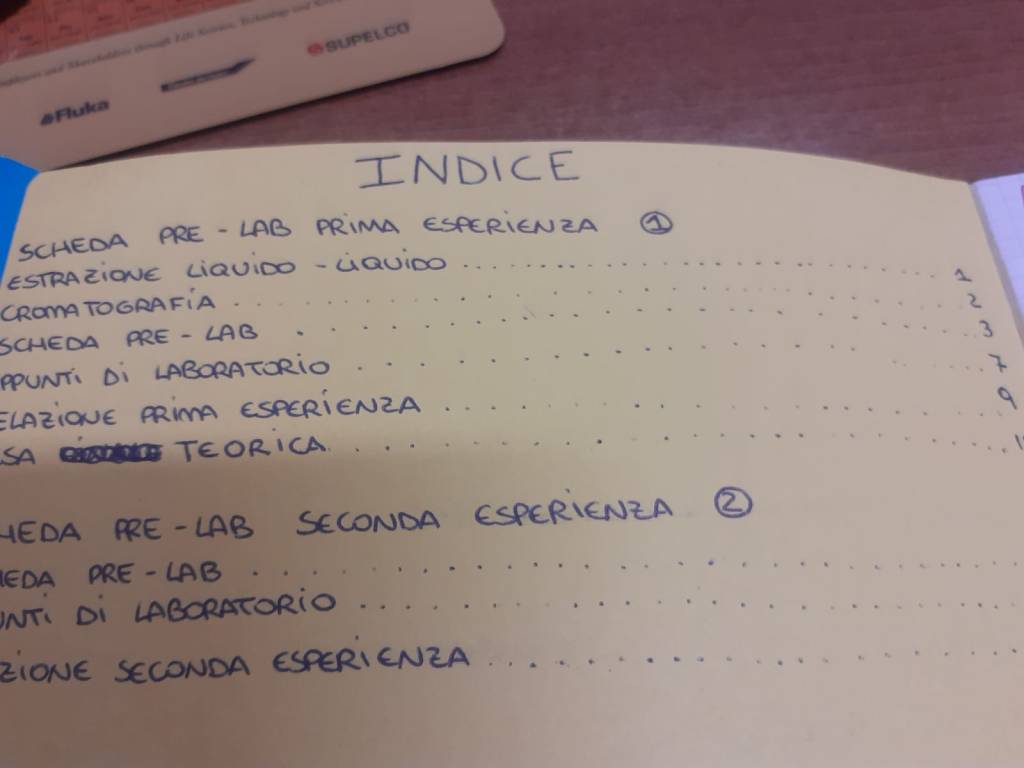 Fluka
SUPELCO
INDICE
SCHEDA PRE-LAB PRIMA ESPERIENZA ①
ESTRAZIONE LIQUIDO-LIQUIDO .......... 1
CROMATOGRAFIA .......... 2
SCHEDA PRE-LAB .......... 3
PPUNTI DI LABORATORIO .......... 7
ELAZIONE PRIMA ESPERIENZA .......... 9
SA TEORICA ..........
HEDA PRE-LAB SECONDA ESPERIENZA ②
HEDA PRE-LAB ..........
UNTI DI LABORATORIO ..........
ZIONE SECONDA ESPERIENZA ..........